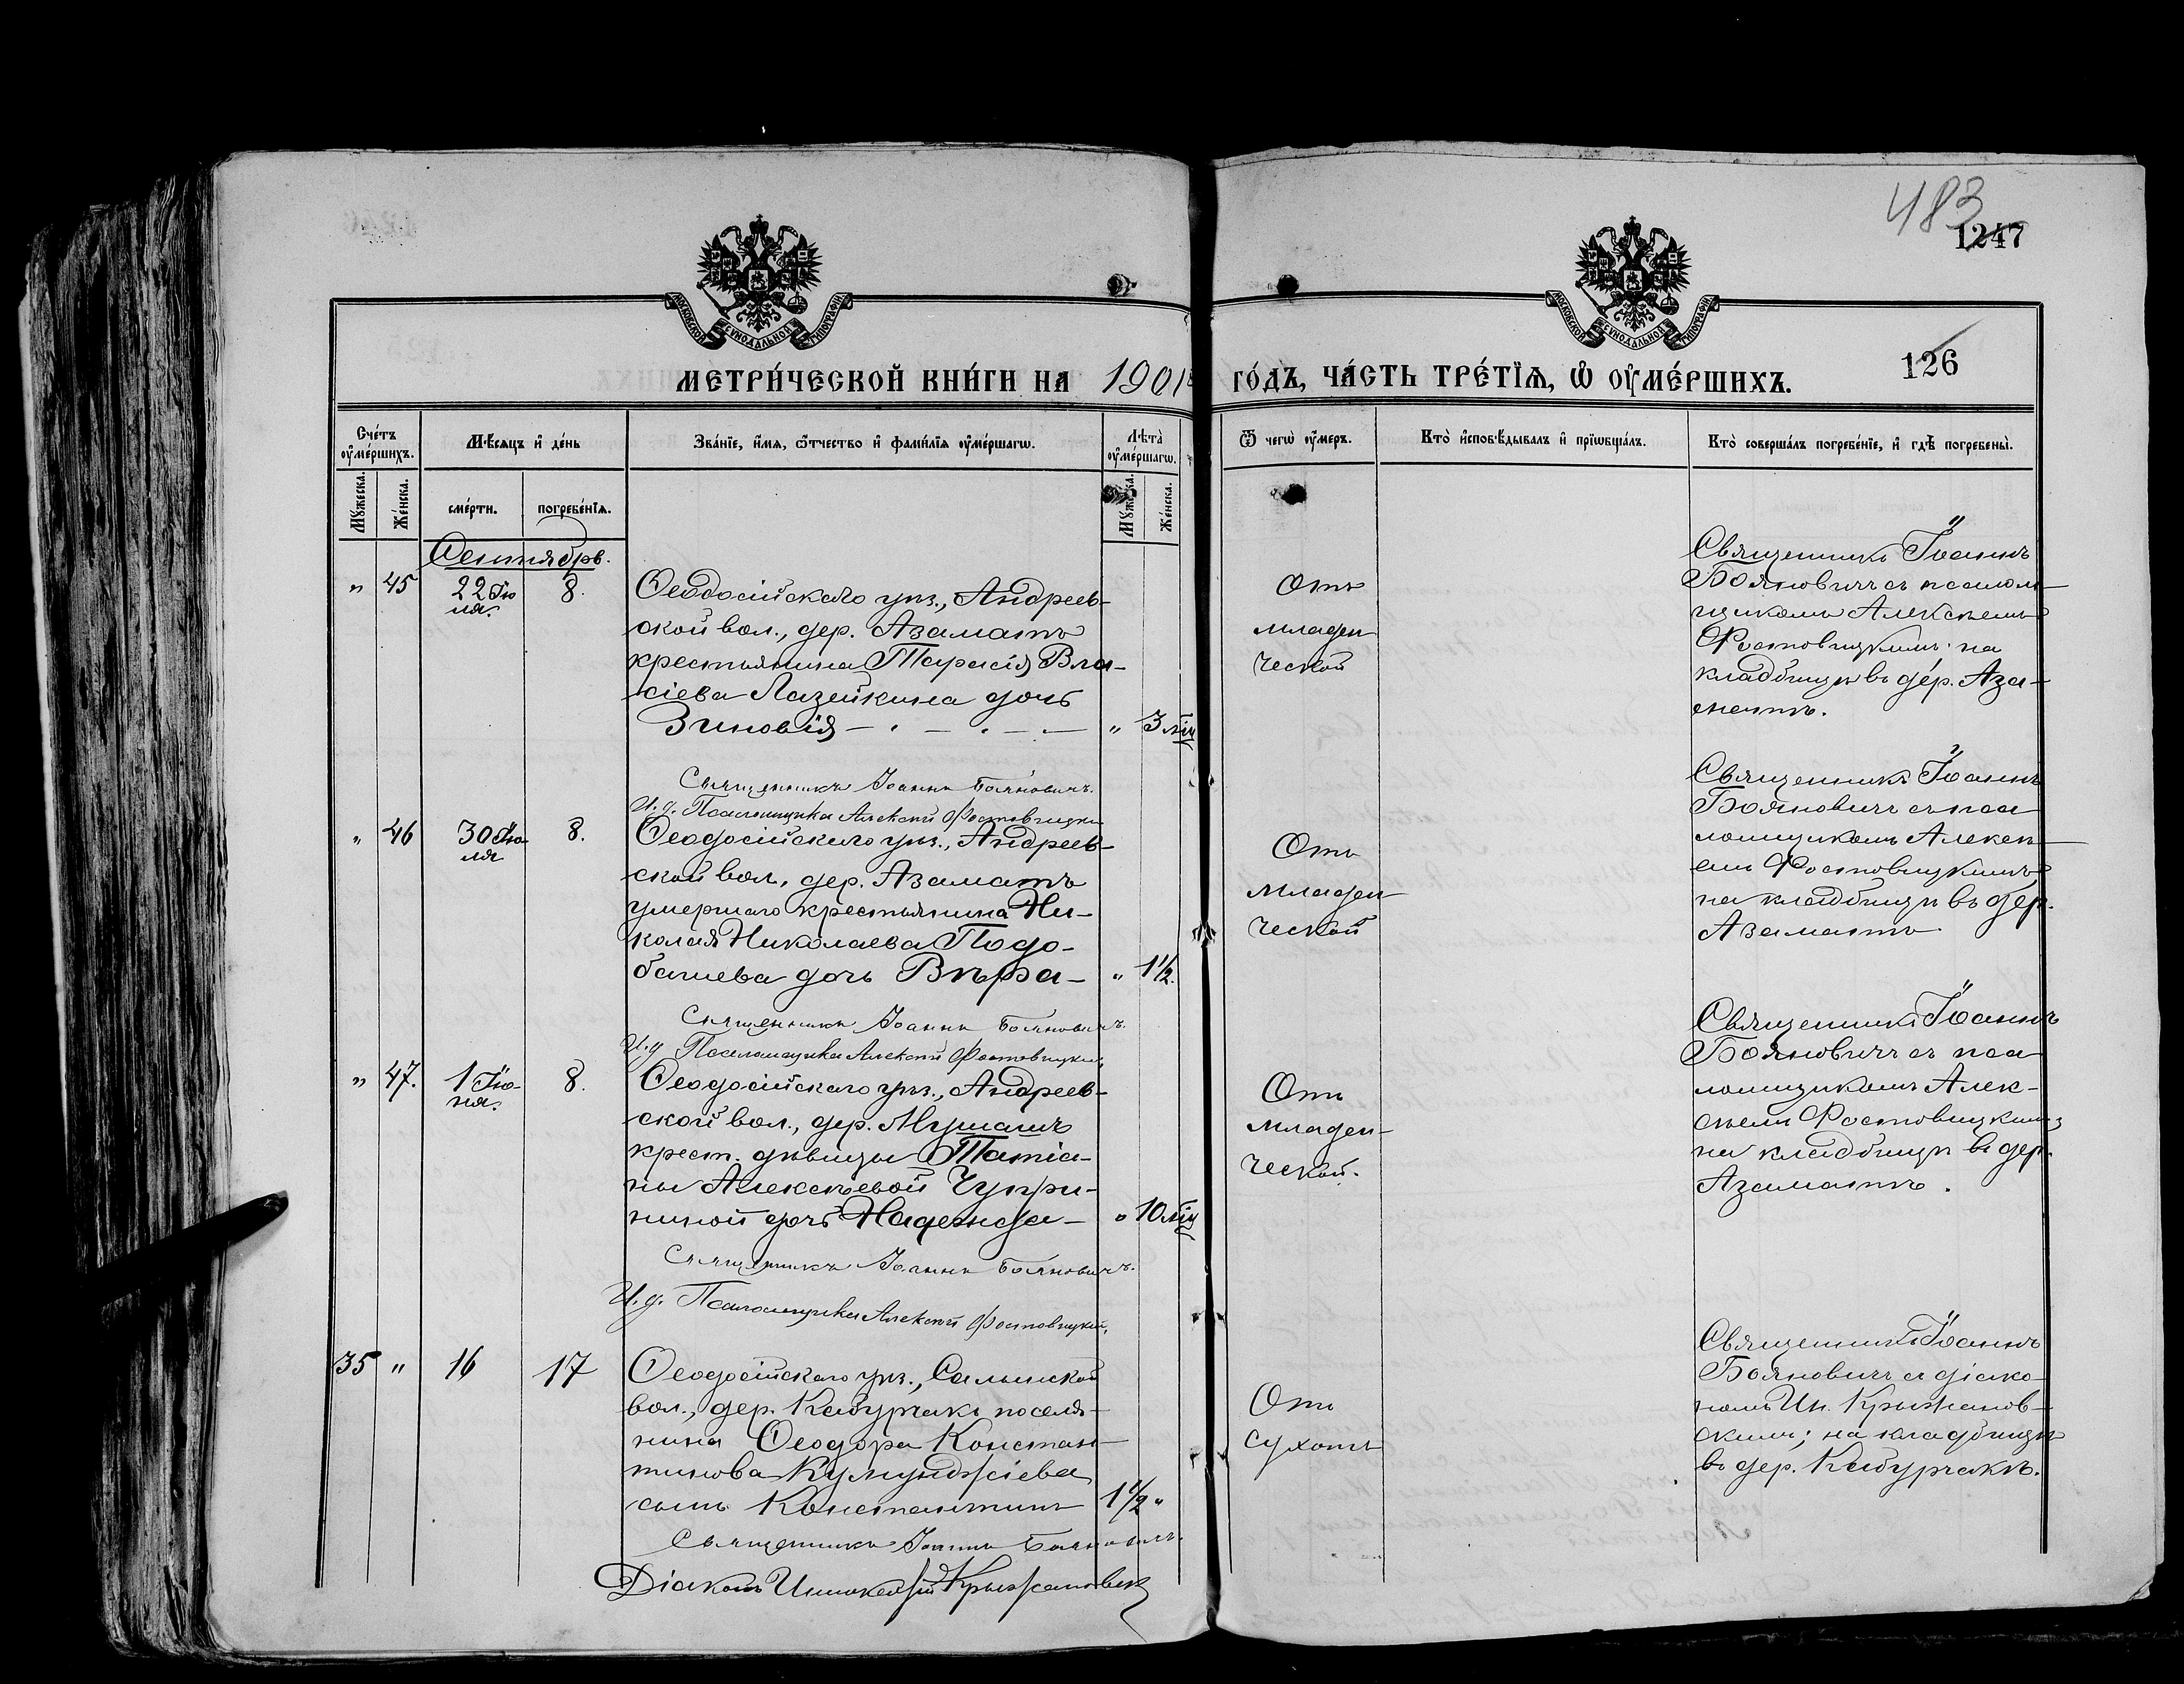 483
1247
126
МОСКОВСКОЙ СѴНОДАЛЬНОЙ ТИПОГРАФІИ
МОСКОВСКОЙ СѴНОДАЛЬНОЙ ТИПОГРАФІИ
МЕТРИ́ЧЕСКОЙ КНИ́ГИ НА 1901
ГО́ДЪ, ЧА́СТЬ ТРЕ́ТЇѦ, Ѡ ОУ҆МЕ́РШИХЪ.
Сче́тъ оу҆ме́ршихъ.
Мѣ́сѧцъ и҆ де́нь
Зва́нїе, и҆́мѧ, ѻ҆́тчество и҆ фами́лїѧ оу҆ме́ршагѡ.
Лѣ́та̀ оу҆ме́ршагѡ.
Ѿ чегѡ̀ оу҆́меръ.
Кто̀ и҆сповѣ́дывалъ и҆ прїѡбща́лъ.
Кто̀ соверша́лъ погребе́нїе, и҆ гдѣ̀ погребены̀.
Мꙋ́жеска.
Же́нска.
сме́рти.
погребе́нїѧ.
Мꙋ́жеска.
Же́нска.
Сентябрь.
" 45
22 Ію
ля.
8.
Ѳеодосійскаго уѣз., Андреев-
ской вол., дер. Азаматъ
крестьянина Тарасія Вла-
сіева Лазейкина дочь
Зиновія
" 3 мѣц
Отъ
младен
ческой
Священникъ Іоаннъ
Бояновичъ съ псалом
щикомъ Алексѣемъ
Фостовицкимъ на
кладбищѣ въ дер. Аза-
матъ.
Священникъ Іоаннъ Бояновичъ.
И. д. Псаломщика Алексѣй Фостовицкій
" 46
30 Ію-
ля
8.
Ѳеодосійскаго уѣз., Андреев-
ской вол., дер. Азаматъ
умершаго крестьянина Ни-
колая Николаева Подо-
башева дочь Вѣра
" 1 1/2.
Отъ
младен
ческой
Священникъ Іоаннъ
Бояновичъ съ пса
ломщикомъ Алексѣ
емъ Фостовицкимъ
на кладбищѣ въ дер.
Азаматъ
Священникъ Іоаннъ Бояновичъ.
И. д. Псаломщика Алексѣй Фостовицкій
" 47.
1 Ію-
ня.
8.
Ѳеодосійскаго уѣз., Андреев-
ской вол., дер. Мушашъ
крест. дѣвицы Татіа-
ны Алексѣевой Чупри-
ниной дочь Надежда
" 10 мѣц
Отъ
младен-
ческой.
Священникъ Іоаннъ
Бояновичъ съ пса
ломщикомъ Алек-
сѣемъ Фостовицкимъ
на кладбищѣ въ дер.
Азаматъ.
Священникъ Іоаннъ Бояновичъ.
И. д. Псаломщика Алексѣй Фостовицкій,
35 "
16
17
Ѳеодосійскаго уѣз., Салынской
вол., дер. Кабурчакъ поселя-
нина Ѳеодора Констан-
тинова Куюмджіева
сынъ Константинъ
1 1/2 "
Отъ
сухотъ
Священникъ Іоаннъ
Бояновичъ съ діако
номъ Ин. Крыжанов-
скимъ; на кладбищѣ
въ дер. Кабурчакъ.
Священникъ Іоаннъ Бояновичъ.
Діаконъ Иннокентій Крыжановскій